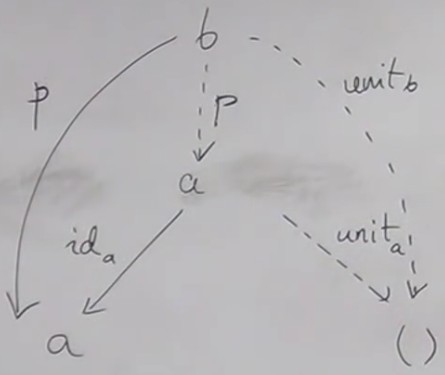 b
p
p
unit b
a
id a
unit a
a
()